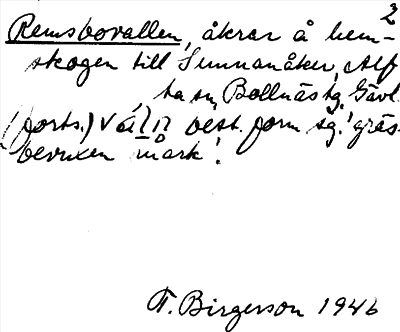 2
Remsbovallen, åkrar å hem-
skogen till Sunnanåker, Alf
ta sn, Bollnästg. Gävl.
(forts.) best. form sg. 'gräs
bevuxen mark'.
T. Birgerson 1946